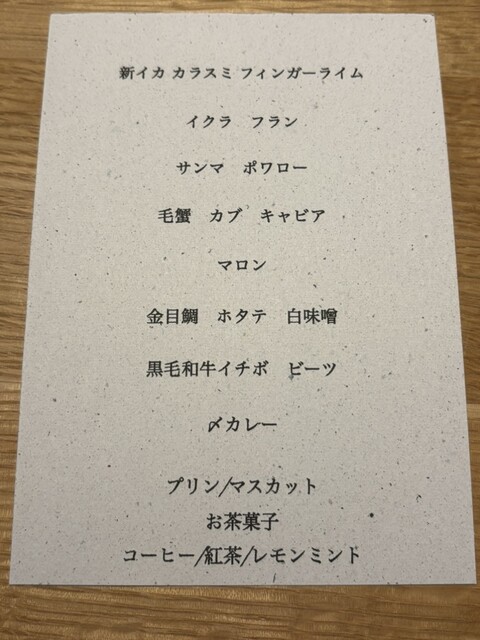 新イカ カラスミ フィンガーライム
イクラ　フラン
サンマ　ポワロー
毛蟹　カブ　キャビア
マロン
金目鯛　ホタテ　白味噌
黒毛和牛イチボ　ビーツ
〆カレー
プリン/マスカット
お茶菓子
コーヒー/紅茶/レモンミント